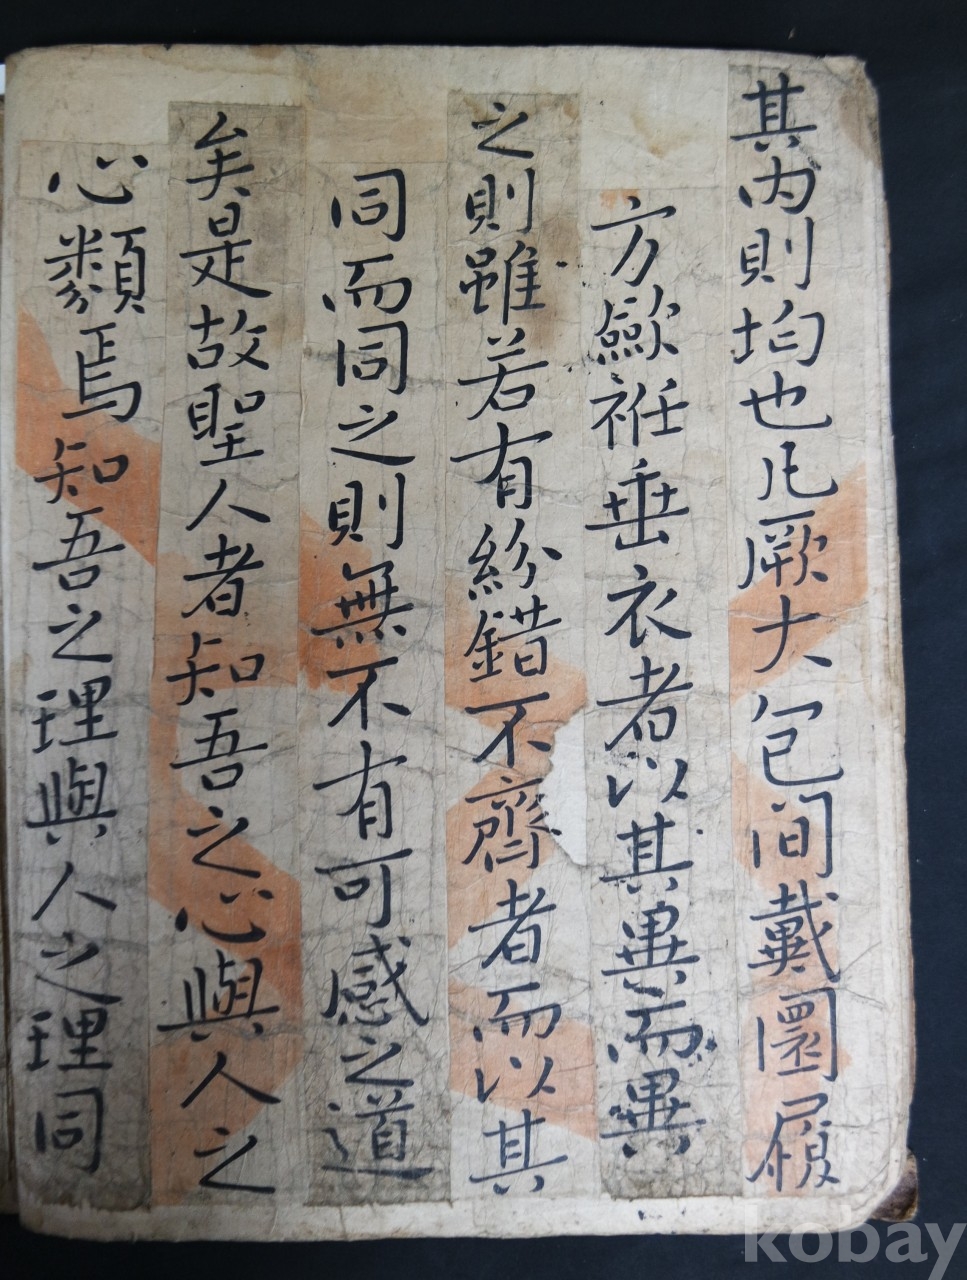 其內則均也凡厥大包間戴圜履
方歛袵垂衣者以其異而異
之則雖若有紛錯不齊者而以其
同而同之則無不有可感之道
矣是故聖人者知吾之心與人之
心類焉知吾之理與人之理同
kobay